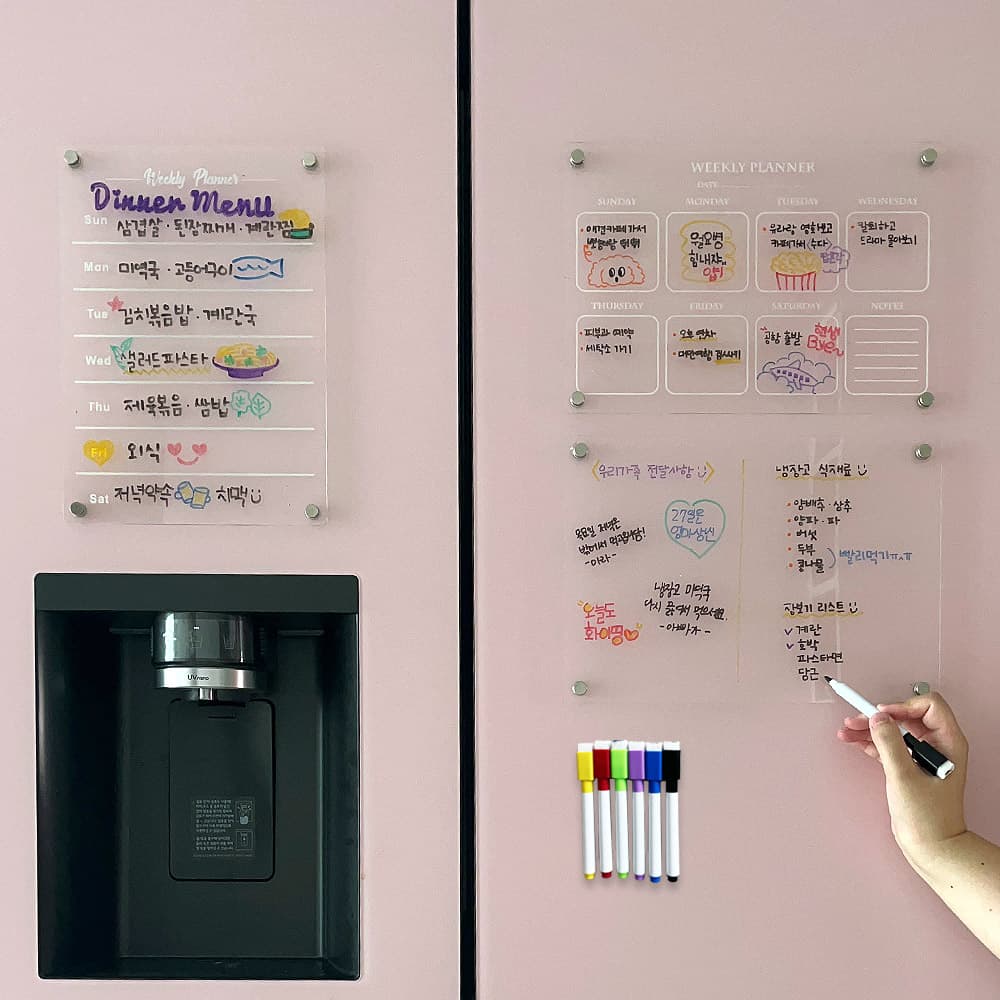 Weekly Planner
Dinner Menu
Sun 삼겹살 · 된장찌개 · 계란찜
Mon 미역국 · 고등어구이
Tue 김치볶음밥 · 계란국
Wed 샐러드파스타
Thu 제육볶음 · 쌈밥
Fri 외식
Sat 저녁약속 치맥
UV nano
WEEKLY PLANNER
DATE
SUNDAY MONDAY TUESDAY WEDNESDAY
애견카페 가서
월요병
힘내쟈
유라랑 영화보고
카페가서 (수다)
팝콘각
칼퇴하고
드라마 몰아보기
THURSDAY FRIDAY SATURDAY NOTES
· 피부과 예약
· 세탁소 가기
· 오후 연차
· 대만여행 짐싸기
공항 출발
현생
Bye~
<우리가족 전달사항>
목요일 저녁은
밖에서 먹고옵니당!
- 미라 -
27일은
엄마생신
냉장고 미역국
다시 끓여서 먹으세요.
- 아빠가 -
오늘도
화이팅
냉장고 식재료
· 양배추 · 상추
· 양파 · 파
· 버섯
· 두부
· 콩나물
빨리먹기ㅠㅠ
장보기 리스트
✓ 계란
✓ 호박
파스타면
당근